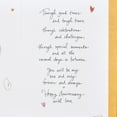 Through good times
and tough times
through celebrations
and challenges,
through special moments
and all the
normal days in between,
You will be my
one and only
forever and always.
Happy Anniversary
with love